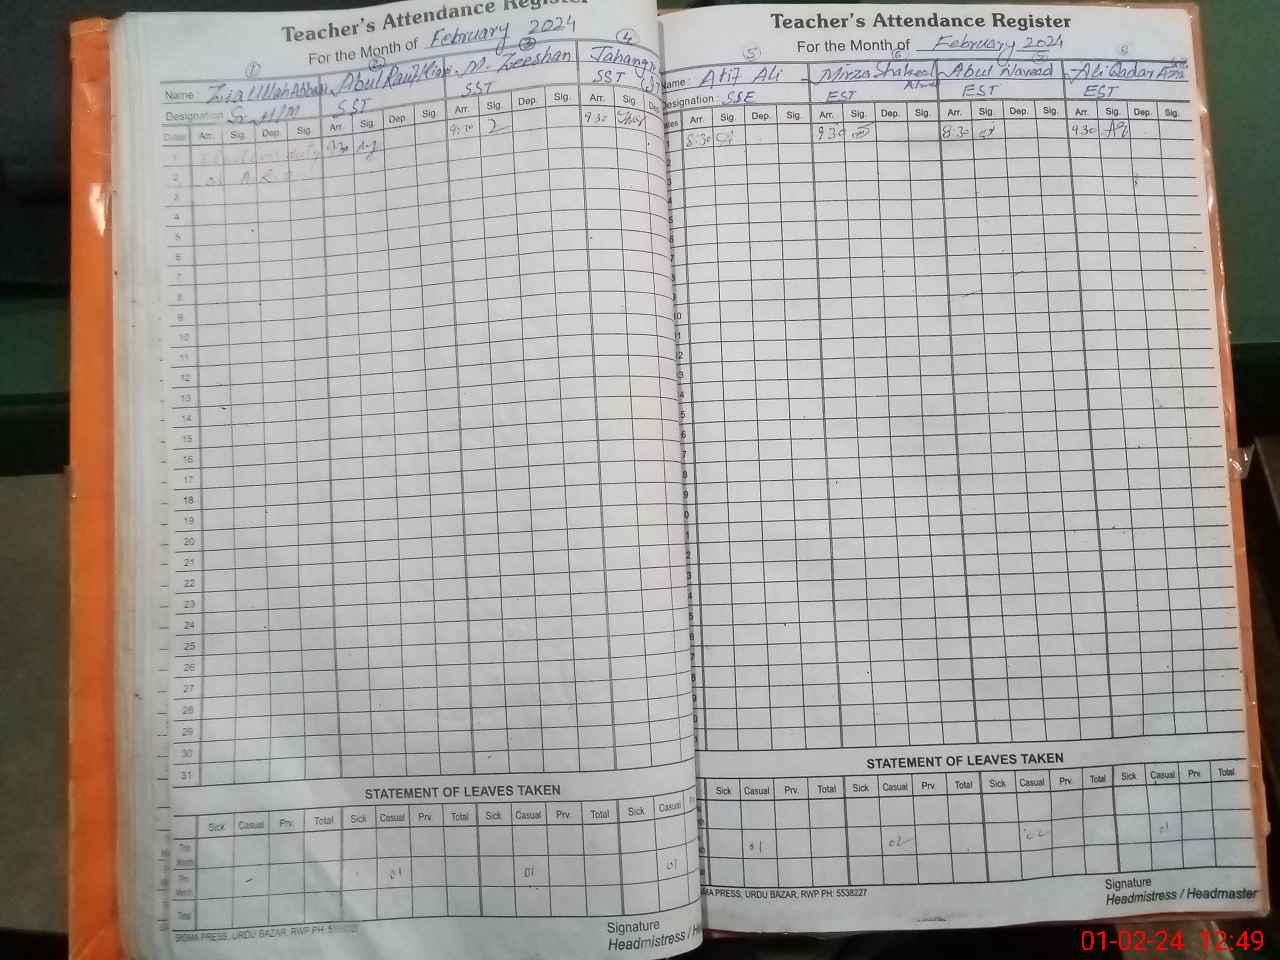 Teacher's Attendance Register
For the Month of February 2024
1 2 3 4
Name : Zia Ullah Abbasi Abul Rauf M. Zeeshan Jahangir
Designation Sr. H/M SST SST SST
Dates Arr. Sig. Dep. Sig. Arr. Sig. Dep. Sig. Arr. Sig. Dep. Sig. Arr. Sig. Dep.
1 9:30
2
3
4
5
6
7
8
9
10
11
12
13
14
15
16
17
18
19
20
21
22
23
24
25
26
27
28
29
30
31
STATEMENT OF LEAVES TAKEN
Sick Casual Prv. Total Sick Casual Prv. Total Sick Casual Prv. Total Sick Casual
Month
01 01 01
Month
Total
SIGMA PRESS, URDU BAZAR, RWP PH:
Signature
Headmistress /
Teacher's Attendance Register
For the Month of February 2024
5 6 7 8
Name : Atif Ali Mirza Shakeel Abul Nawad Ali Qadar
Designation : SSE EST EST EST
Arr. Sig. Dep. Sig. Arr. Sig. Dep. Sig. Arr. Sig. Dep. Sig. Arr. Sig. Dep. Sig.
1 8:30 930 8:30 930
STATEMENT OF LEAVES TAKEN
Sick Casual Prv. Total Sick Casual Prv. Total Sick Casual Prv. Total Sick Casual Prv. Total
01 02 02 01
SIGMA PRESS, URDU BAZAR, RWP PH: 5538227
Signature
Headmistress / Headmaster
01-02-24 12:49